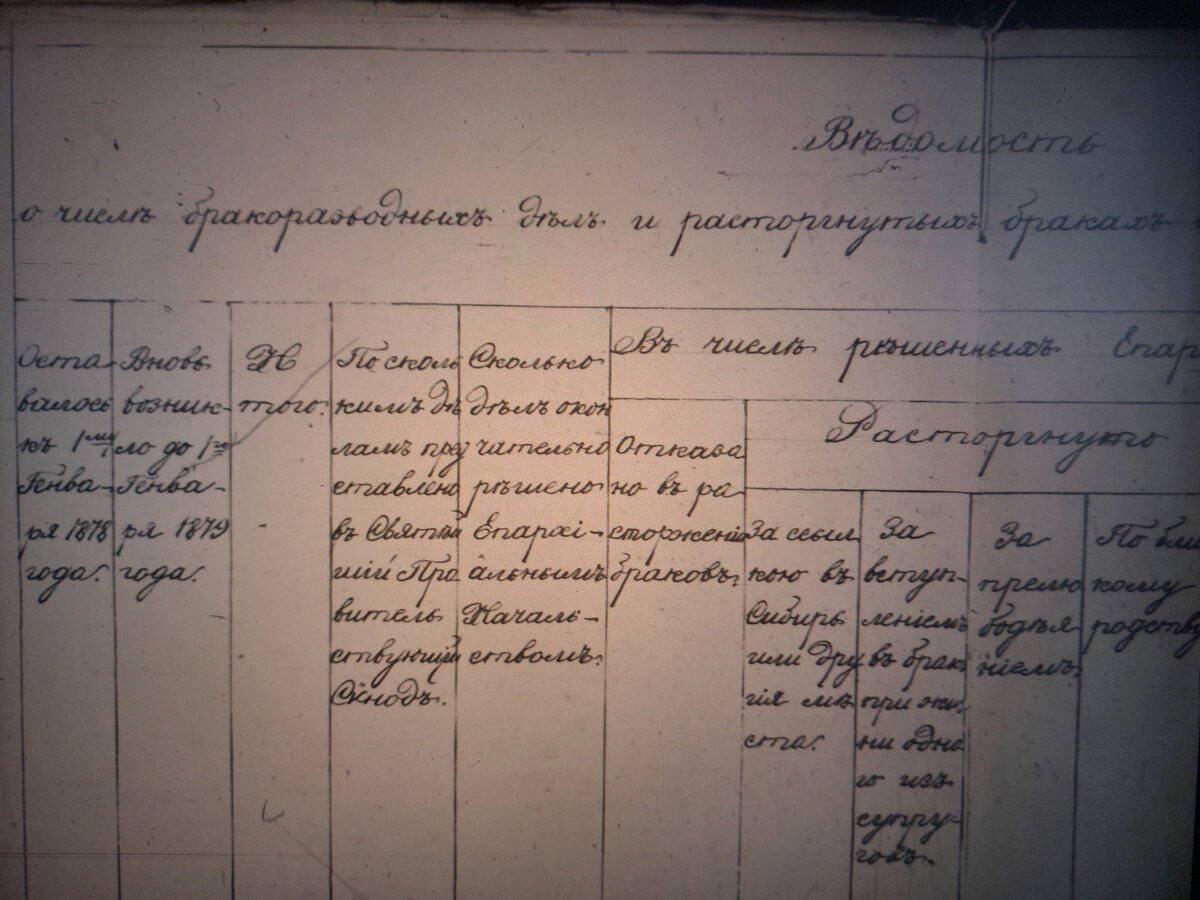 Вѣдомость
о числѣ бракоразводныхъ дѣлъ и расторгнутыхъ бракахъ
Оста
валось
къ 1му
Генва-
ря 1878
года.
Вновь
возник-
ло до 1го
Генва-
ря 1879
года.
И
того.
По сколь
кимъ дѣ
ламъ пред
ставлено
въ Святѣй
шій Пра
витель
ствующій
Сѵнодъ.
Сколько
дѣлъ окон
чательно
рѣшено
Епархі-
альнымъ
Началь-
ствомъ.
Въ числѣ рѣшенныхъ Епар
Отказа
но въ ра
сторженіи
браковъ.
Расторгнуто
За ссыл
кою въ
Сибирь
или дру
гія мѣ
ста.
За
вступ-
леніемъ
въ бракъ
при жиз
ни одно
го изъ
супру-
говъ.
За
прелю
бодѣя
ніемъ.
По бли
кому
родству